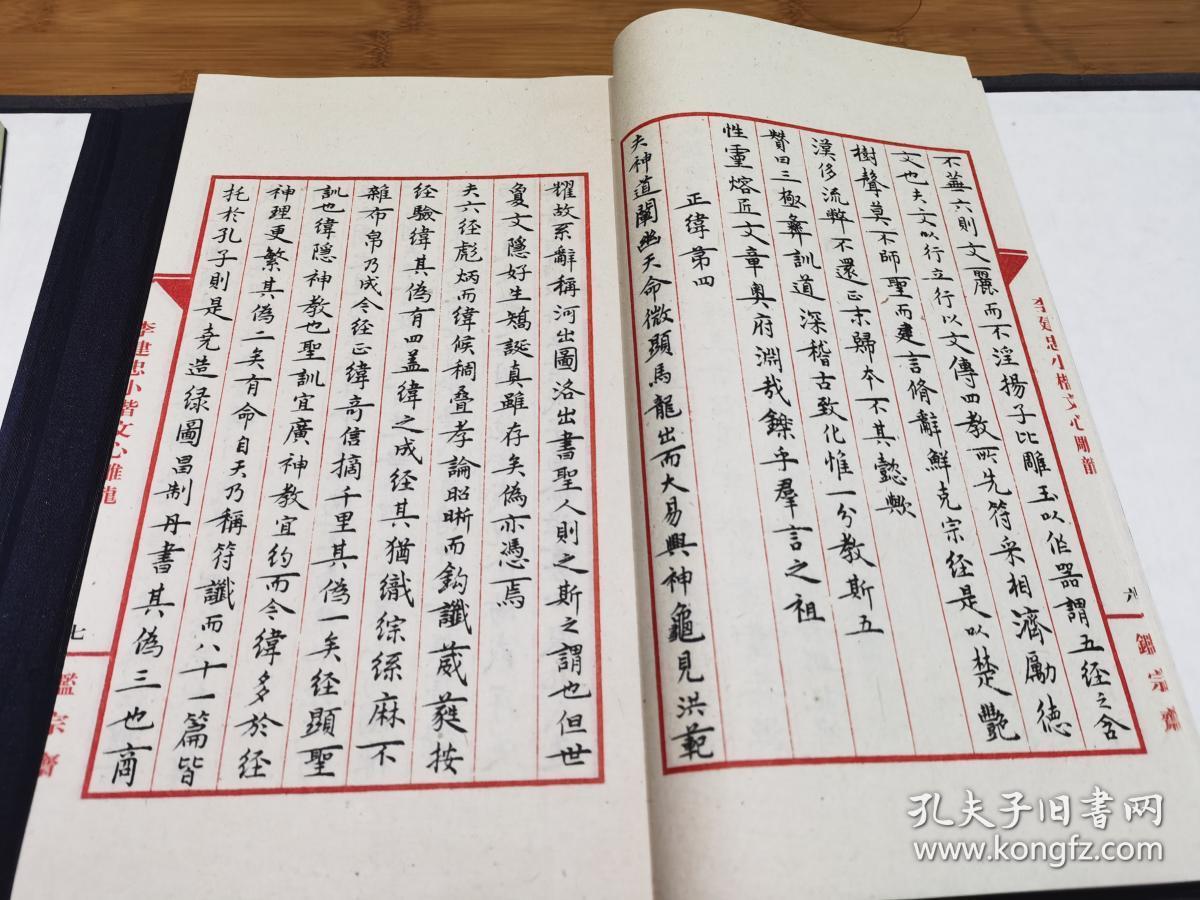 不蕪六則文麗而不淫揚子比雕玉以作器謂五经之含
文也夫文以行立行以文傳四教所先符采相濟勵德
樹聲莫不師聖而建言脩辭鮮克宗经是以楚艷
漢侈流弊不還正末歸本不其懿歟
贊曰三極彝訓道深稽古致化惟一分教斯五
性靈熔匠文章奥府淵哉鑠乎羣言之祖
正緯第四
夫神道闡幽天命微顯馬龍出而大易興神龜見洪範
耀故系辭稱河出圖洛出書聖人則之斯之謂也但世
敻文隱好生矯誕真雖存矣偽亦憑焉
夫六经彪炳而緯候稠叠孝論昭晰而鈎讖葳蕤按
经驗緯其偽有四盖緯之成经其猶織综絲麻不
雜布帛乃成今经正緯奇倍摘千里其偽一矣经顯聖
訓也緯隱神教也聖訓宜廣神教宜约而今緯多於经
神理更繁其偽二矣有命自天乃稱符讖而八十一篇皆
托於孔子則是堯造绿圖昌制丹書其偽三也商
李建忠小楷文心雕龍
六
李建忠小楷文心雕龍
七
鑑宗齋
孔夫子旧書网
www.kongfz.com